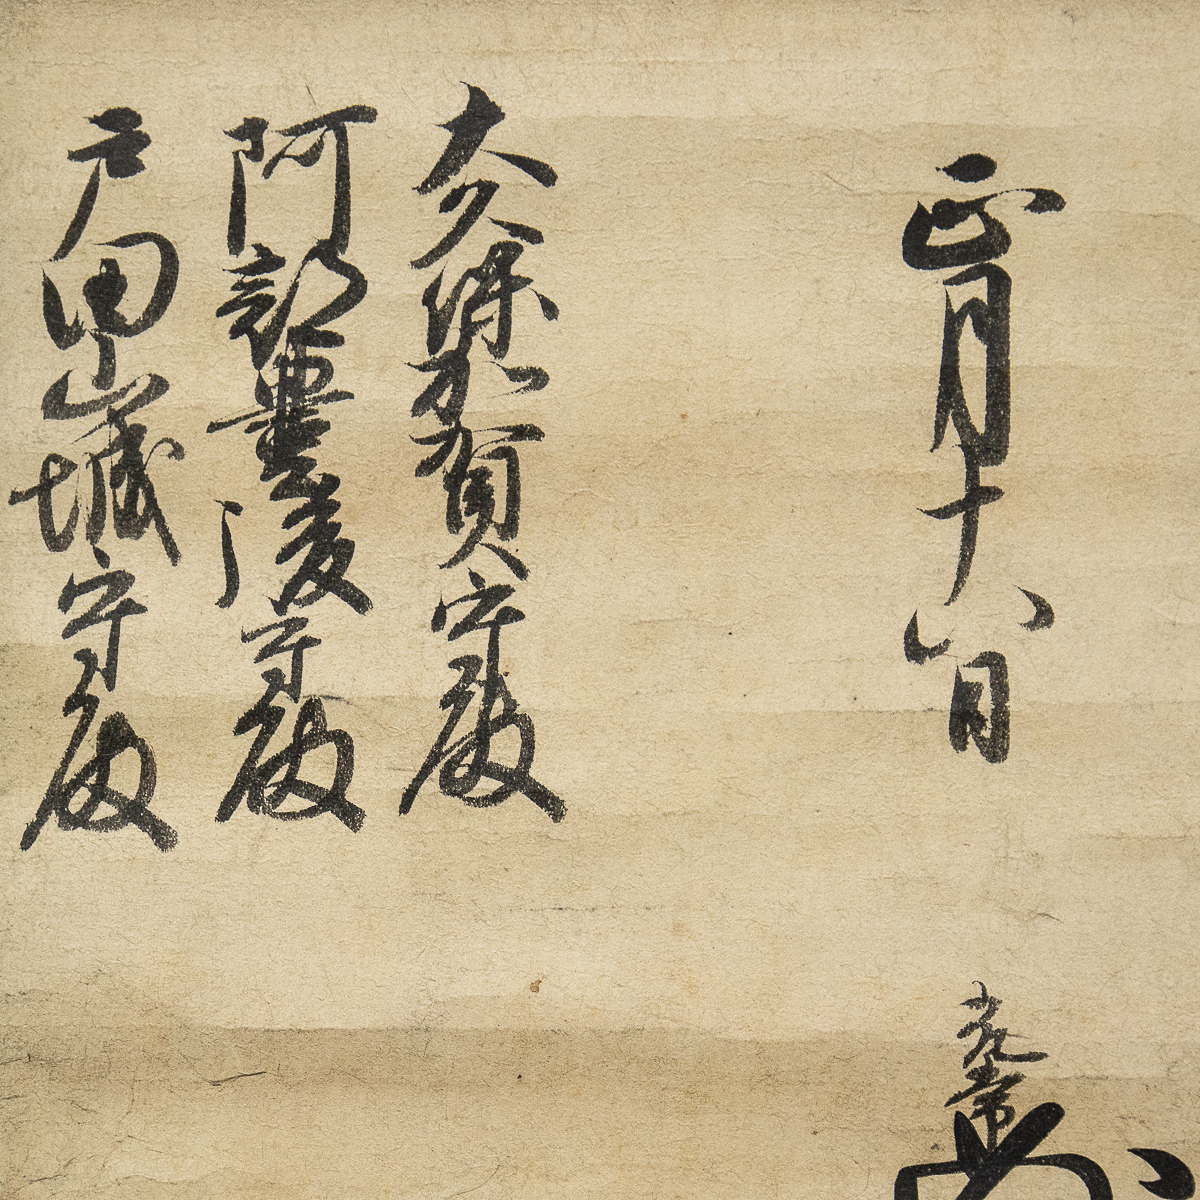 正月十八日
光常
大久保加賀守殿
阿部豊後守殿
戸田山城守殿